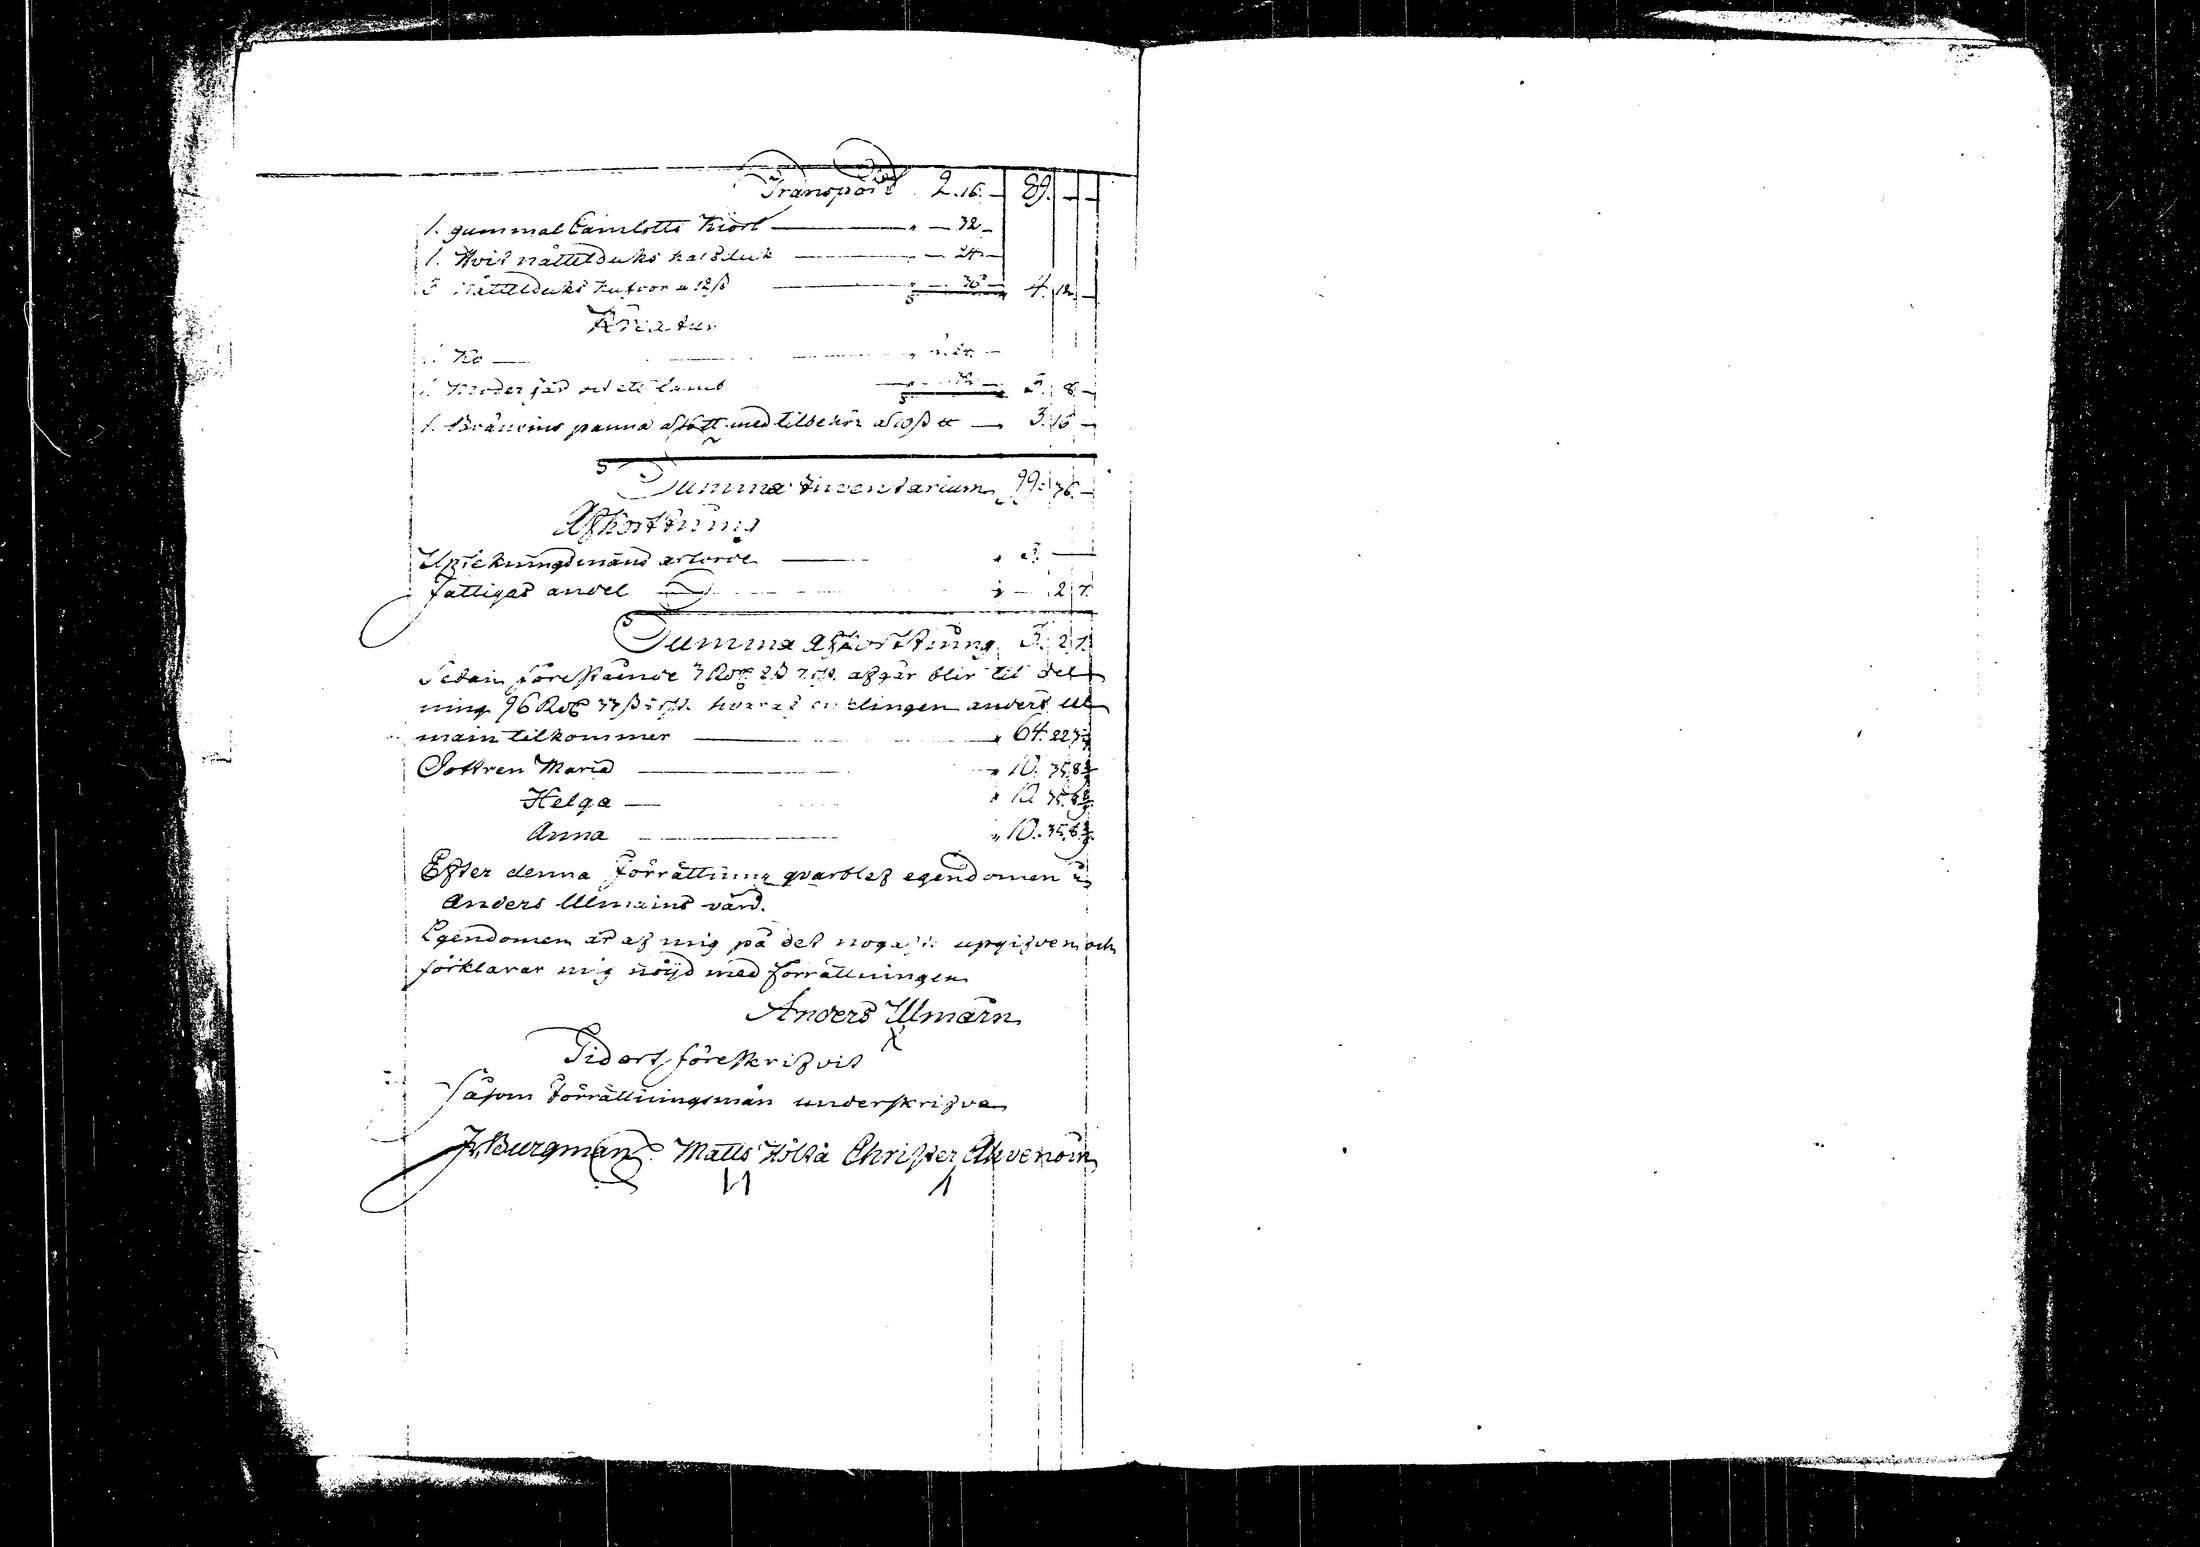 Transport 2. 16. — 89. — —
1. gummal Camlotts Kiorl — „ — 32 —
1. Hvit nättelduks halsduk — „ — 24 —
3 Nättelduks hufvor a 12ß — „ — 36 — 4. 12 —
Kreatur
1 Ko —
1 Moder får et ett lamb — 8 —
1. Bränvins panna med tilbehör — 3. 16 —
Summa Inventarium 99. 36. —
Afkortning
Upteckningsmäns arvode — „ 3. —
Fattigas andel — „ — 2 7.
Summa Afkortning 3. 2 7.
Sedan föreståënde 3 Rdr 2ß 7 rst. afgår blir til del
ning 96 Rdr 33ß 5 rst. hvaraf enklingen anders Ul
main tilkommer — „ 64. 22
Dottren Maria — „ 10. 35. 8
Helga — „ 10. 35. 8
Anna — „ 10. 35. 8
Efter denna förrättning qvarblef egendomen u
Anders Ulmains vård.
Egendomen är af mig på det nogaste upgifven och
förklarar mig nöijd med förrättningen
Anders Ulmain
X
Tid ort föreskrifvit
Såsom Förrättningsmän underskrifva
Burgman Matts Hölsä Christer Ahvenoin